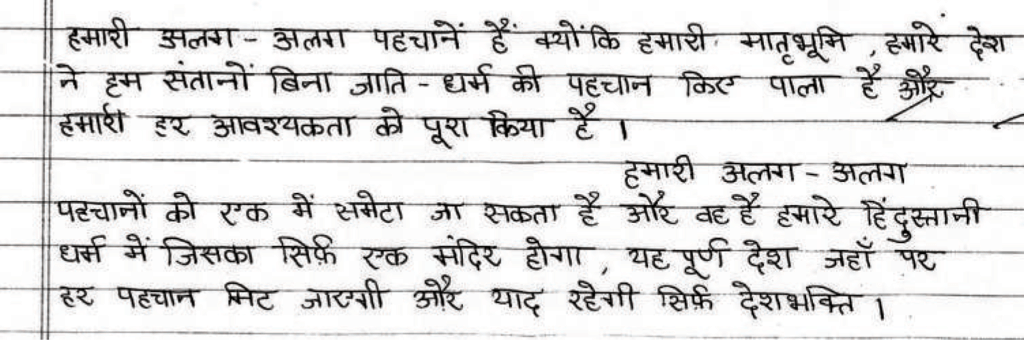 हमारी अलग - अलग पहचानें हैं क्योंकि हमारी मातृभूमि , हमारे देश
ने हम संतानों बिना जाति - धर्म की पहचान किए पाला है और
हमारी हर आवश्यकता को पूरा किया है ।
हमारी अलग - अलग
पहचानों को एक में समेटा जा सकता है और वह है हमारे हिंदुस्तानी
धर्म में जिसका सिर्फ़ एक मंदिर होगा , यह पूर्ण देश जहाँ पर
हर पहचान मिट जाएगी और याद रहेगी सिर्फ़ देशभक्ति ।